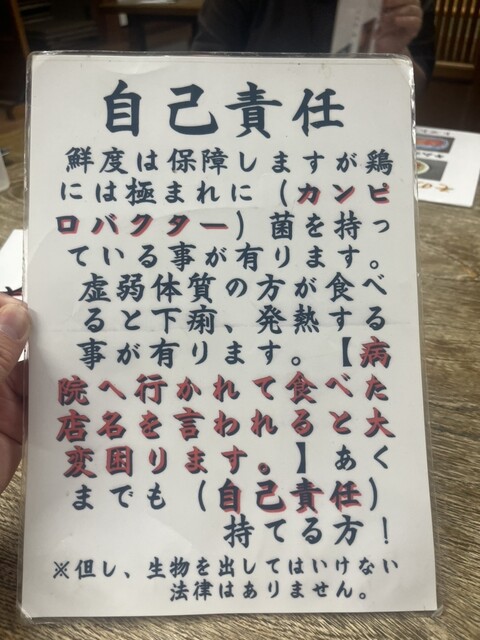 自己責任
鮮度は保障しますが鶏
には極まれに(カンピ
ロバクター)菌を持っ
ている事が有ります。
虚弱体質の方が食べ
ると下痢、発熱する
事が有ります。【病
院へ行かれて食べた
店名を言われると大
変困ります。】あく
までも(自己責任)
持てる方!
※但し、生物を出してはいけない
法律はありません。